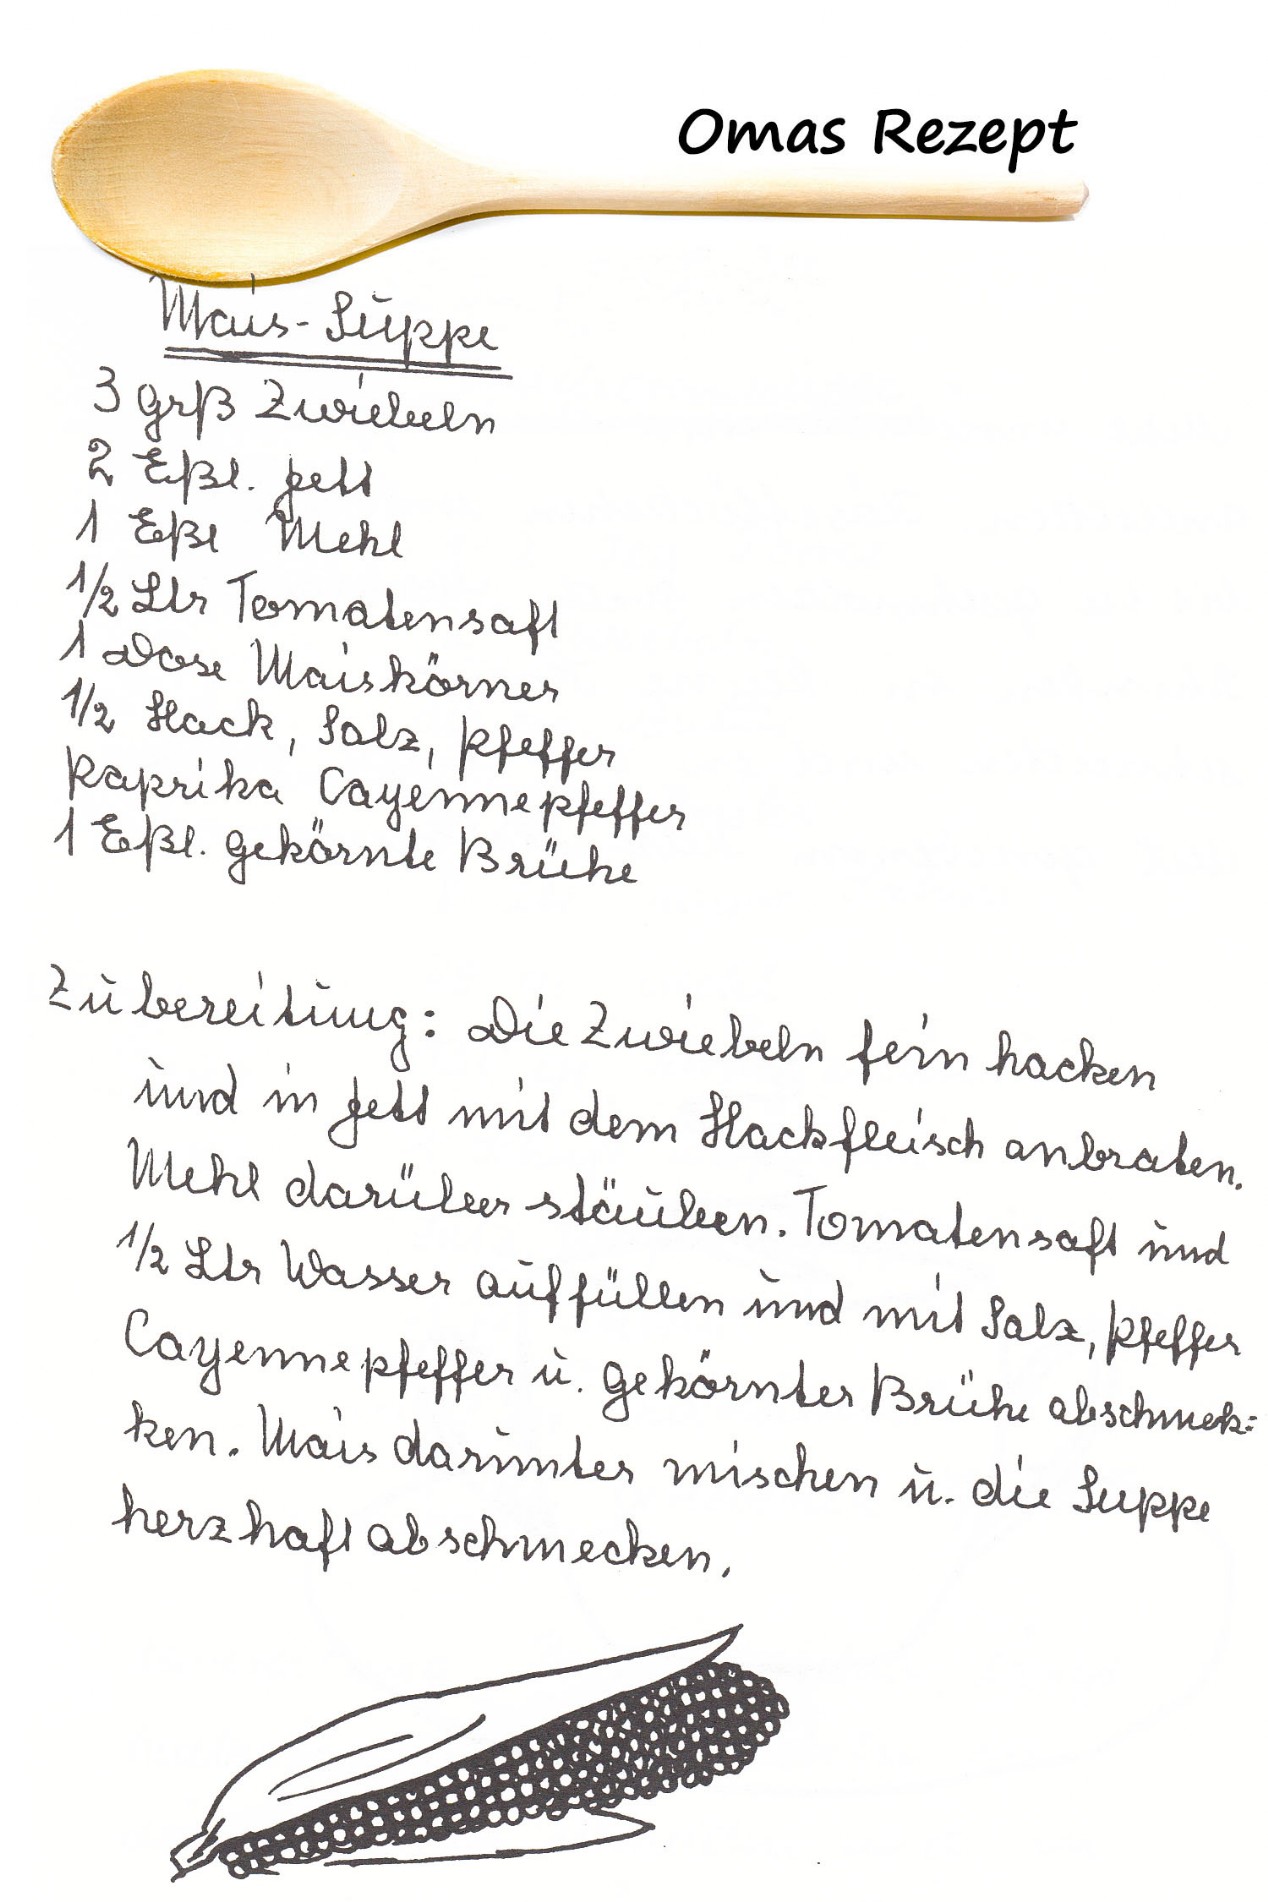 Omas Rezept
Mais-Suppe
3 grß Zwiebeln
2 Eßl. Fett
1 Eßl Mehl
1/2 Ltr Tomatensaft
1 Dose Maiskörner
1/2 Hack, Salz, Pfeffer
Paprika Cayennepfeffer
1 Eßl. gekörnte Brühe
Zubereitung: Die Zwiebeln fein hacken
und in Fett mit dem Hackfleisch anbraten.
Mehl darüber stäuben. Tomatensaft und
1/2 Ltr Wasser auffüllen und mit Salz, Pfeffer
Cayennepfeffer u. gekörnter Brühe abschmek=
ken. Mais darunter mischen u. die Suppe
herzhaft abschmecken.